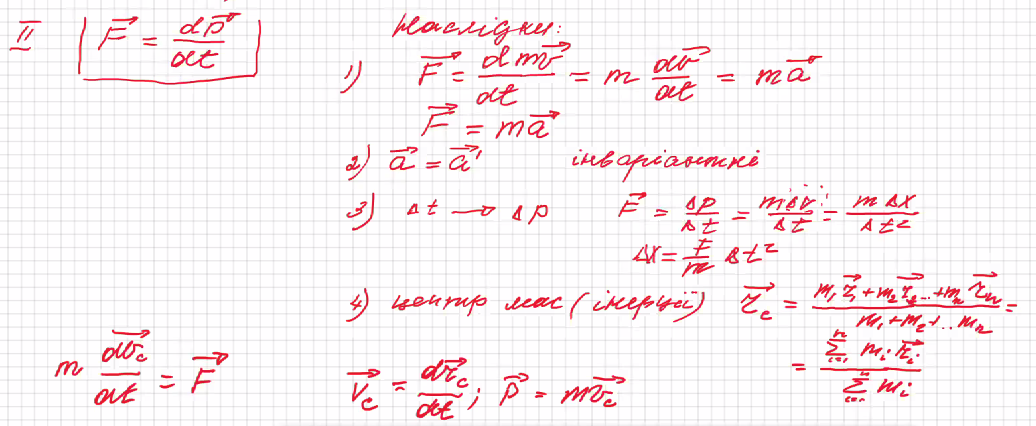 II F⃗ = dp⃗/dt
Наслідки:
1) F⃗ = d mv⃗/dt = m dv⃗/dt = ma⃗
F⃗ = ma⃗
2) a⃗ = a⃗' інваріантні
3) Δt → Δp F⃗ = Δp/Δt = mΔv/Δt = mΔx/Δt²
Δx = F/m Δt²
4) центр мас (інерції) r⃗_c = (m₁r⃗₁ + m₂r⃗₂... + mₙr⃗ₙ)/(m₁ + m₂ + ... mₙ) =
= (∑ᵢ₌₁ⁿ mᵢ r⃗ᵢ)/(∑ᵢ₌₁ⁿ mᵢ)
m dv⃗_c/dt = F⃗
V⃗_c = dr⃗_c/dt; p⃗ = mv⃗_c